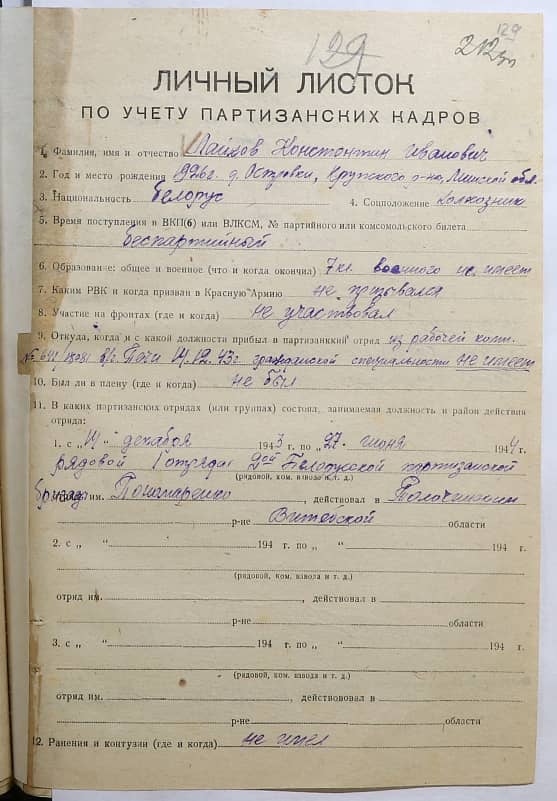 129
129
ЛИЧНЫЙ ЛИСТОК
ПО УЧЕТУ ПАРТИЗАНСКИХ КАДРОВ
1. Фамилия, имя и отчество Лайков Констонтин Иванович
2. Год и место рождения 1926г. д. Островки, Крупского р-на, Минской обл.
3. Национальность белорус 4. Соцположение колхозник
5. Время поступления в ВКП(б) или ВЛКСМ, № партийного или комсомольского билета
беспартийный
6. Образование: общее и военное (что и когда окончил) 7 кл. военного не имеет
7. Каким РВК и когда призван в Красную Армию не призывался
8. Участие на фронтах (где и когда) не участвовал
9. Откуда, когда и с какой должности прибыл в партизанский отряд из рабочей
14.12.43г. гражданской специальности не имеет
10. Был ли в плену (где и когда) не был
11. В каких партизанских отрядах (или группах) состоял, занимаемая должность и район действия
отряда:
1. с „14" декабря 1943 г. по „27" июня 1944 г.
рядовой 1 отряда 2ой Белорусской партизанской
(рядовой, ком. взвода и т. д.)
бригады им. Пономаренко, действовал в Толочинском
р-не Витебской области
2. с „ " 194 г. по „ " 194 г.
(рядовой, ком. взвода и т. д.)
отряд им. , действовал в
р-не области
3. с „ " 194 г. по „ " 194 г.
(рядовой, ком. взвода и т. д.)
отряд им. , действовал в
р-не области
12. Ранения и контузии (где и когда) не имел